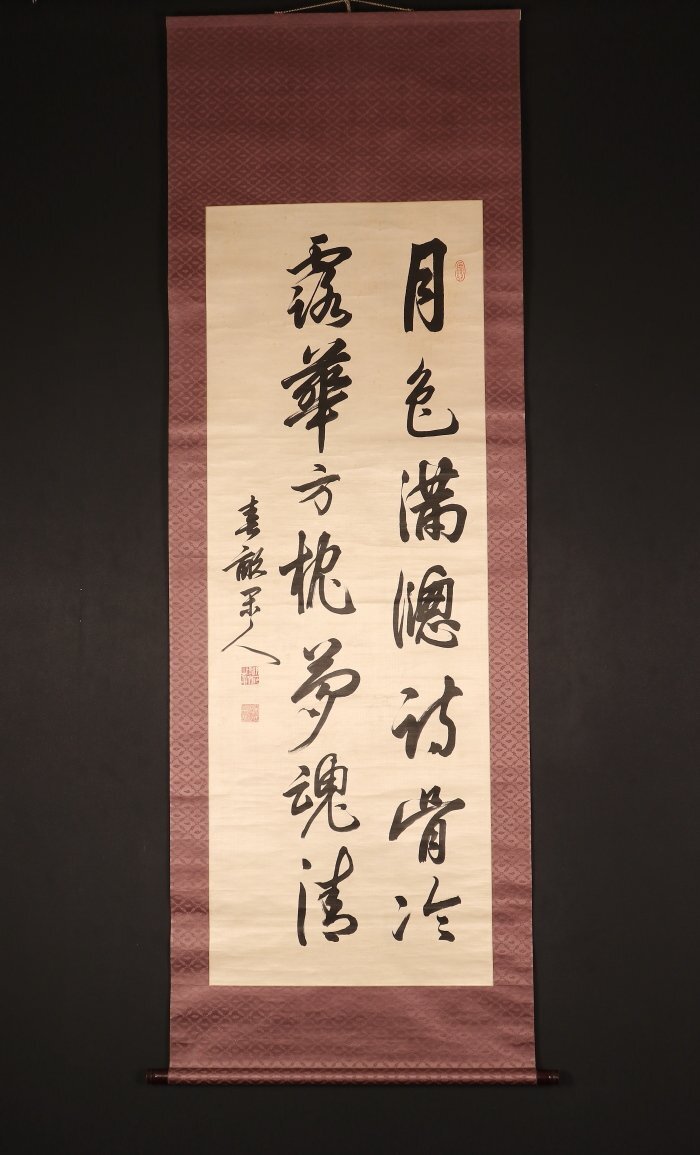 月色滿窻詩骨冷
露華方枕夢魂清
春畝閑人